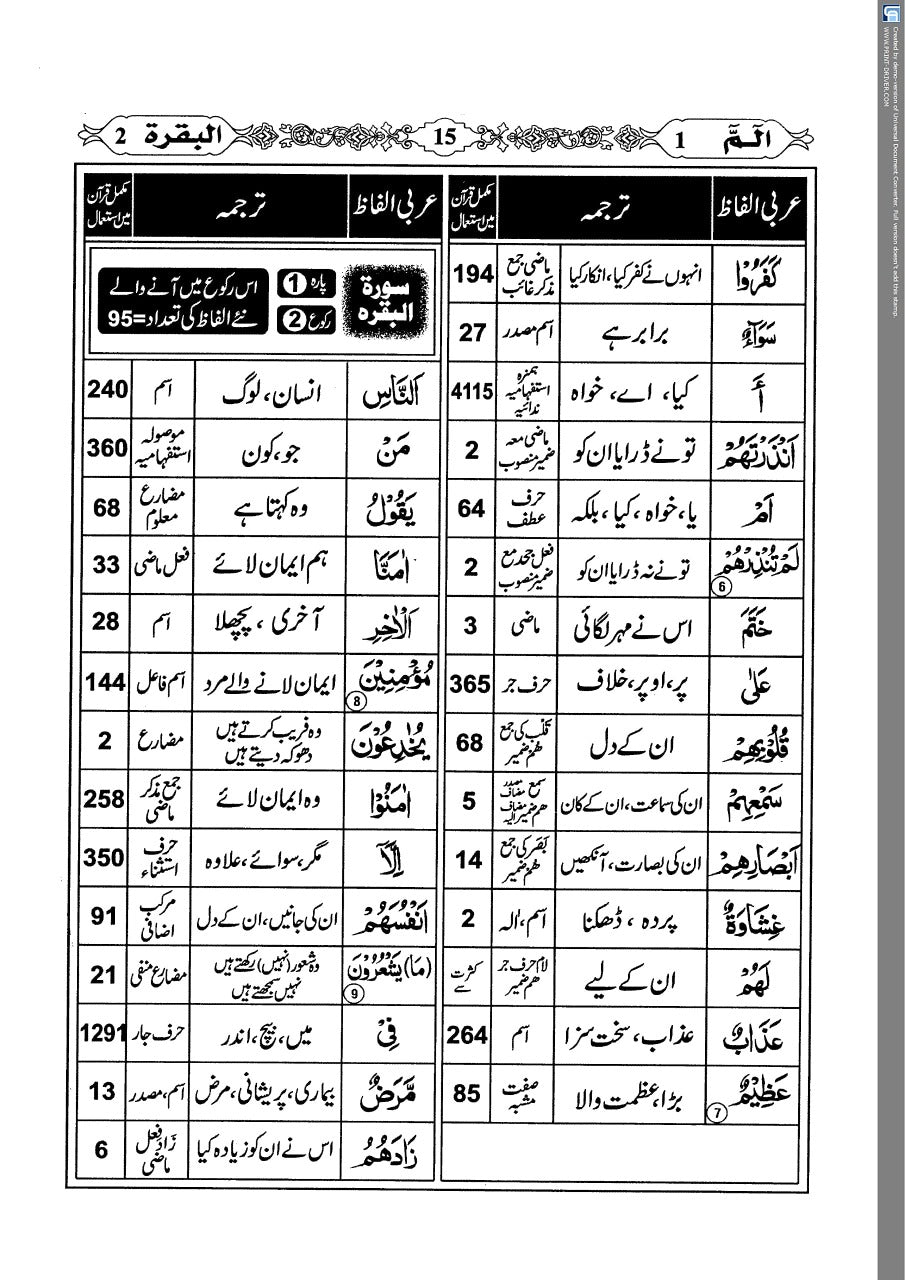 الٓـمّٓ 1
15
البقرة 2
عربی الفاظ ترجمہ مکمل قرآن میں استعمال
كَفَرُوْا انہوں نے کفر کیا، انکار کیا ماضی جمع مذکر غائب 194
سَوَآءٌ برابر ہے اسم مصدر 27
أَ کیا، اے، خواہ ہمزہ استفہامیہ ندائیہ 4115
ءَاَنْذَرْتَهُمْ تو نے ڈرایا ان کو ماضی معہ ضمیر منصوب 2
اَمْ یا، خواہ، کیا، بلکہ حرف عطف 64
لَمْ تُنْذِرْهُمْ 6 تو نے نہ ڈرایا ان کو فعل جحد مع ضمیر منصوب 2
خَتَمَ اس نے مہر لگائی ماضی 3
عَلٰى پر، اوپر، خلاف حرف جر 365
قُلُوْبِهِمْ ان کے دل قلب کی جمع ھم ضمیر 68
سَمْعِهِمْ ان کی سماعت، ان کے کان سمع مصدر مضاف ھم ضمیر مضاف الیہ 5
اَبْصَارِهِمْ ان کی بصارت، آنکھیں بصر کی جمع ھم ضمیر 14
غِشَاوَةٌ پردہ، ڈھکنا اسم، الہ 2
لَهُمْ ان کے لیے لام حرف جر ھم ضمیر کثرت سے
عَذَابٌ عذاب، سخت سزا اسم 264
عَظِيْمٌ 7 بڑا، عظمت والا صفت مشبہ 85
عربی الفاظ ترجمہ مکمل قرآن میں استعمال
سورة البقره
پارہ 1
رکوع 2
اس رکوع میں آنے والے
نئے الفاظ کی تعداد=95
اَلنَّاسِ انسان، لوگ اسم 240
مَنْ جو، کون موصولہ استفہامیہ 360
يَقُوْلُ وہ کہتا ہے مضارع معلوم 68
اٰمَنَّا ہم ایمان لائے فعل ماضی 33
اَلْاٰخِرِ آخری، پچھلا اسم 28
مُؤْمِنِيْنَ 8 ایمان لانے والے مرد اسم فاعل 144
يُخٰدِعُوْنَ وہ فریب کرتے ہیں دھوکہ دیتے ہیں مضارع 2
اٰمَنُوْا وہ ایمان لائے جمع مذکر ماضی 258
اِلَّآ مگر، سوائے، علاوہ حرف استثناء 350
اَنْفُسَهُمْ ان کی جانیں، ان کے دل مرکب اضافی 91
(مَا) يَشْعُرُوْنَ 9 وہ شعور (نہیں) رکھتے ہیں نہیں سمجھتے ہیں مضارع منفی 21
فِيْ میں، بیچ، اندر حرف جار 1291
مَّرَضٌ بیماری، پریشانی، مرض اسم، مصدر 13
زَادَهُمُ اس نے ان کو زیادہ کیا زاد فعل ماضی 6
Created by demo-version of Universal Document Converter. Full version doesn't add this stamp.
WWW.PRINT-DRIVER.COM